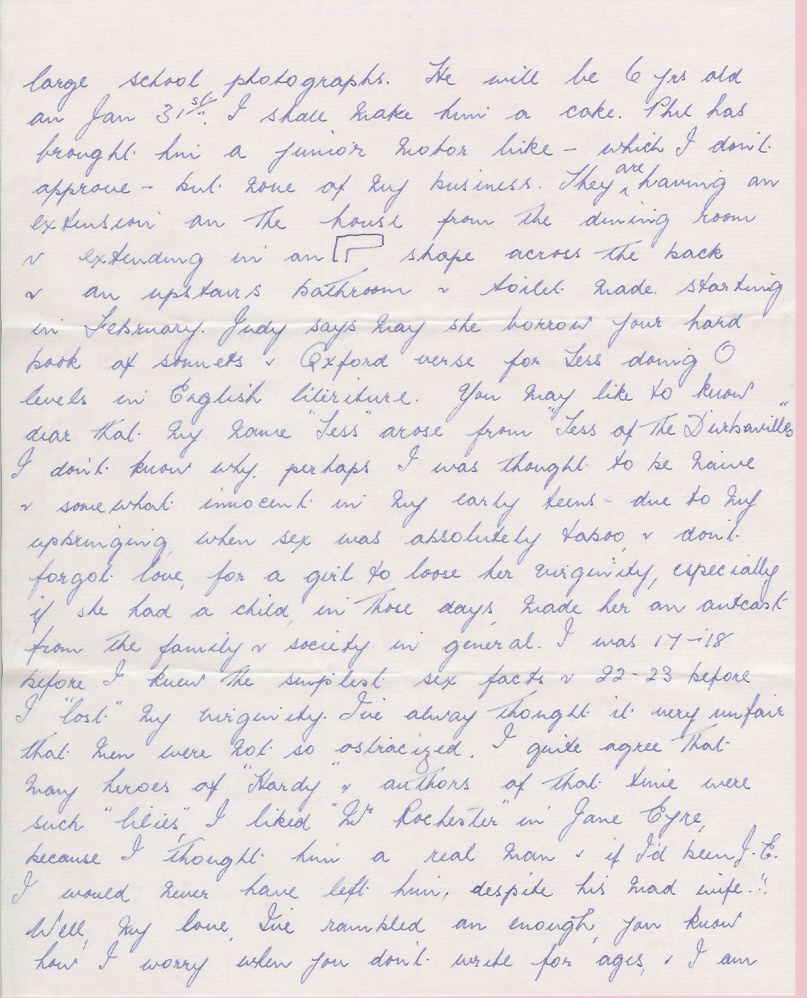 large school photographs. He will be 6 yrs old
on Jan 31st. I shall make him a cake. Phil has
brought him a junior motor bike – which I don't
approve – but none of my business. They are having an
extension on the house from the dining room
& extending in an shape across the back
& an upstairs bathroom & toilet made starting
in February. Judy says may she borrow your hard
book of sonnets & Oxford verse for Tess doing O
levels in English literiture. You may like to know
dear that my name "Tess" arose from "Tess of the D'urbavilles"
I don't know why, perhaps I was thought to be naive
& somewhat innocent in my early teens – due to my
upbringing, when sex was absolutely taboo, & don't
forgot love, for a girl to loose her virginity, especially
if she had a child, in those days, made her an outcast
from the family & society in general. I was 17–18
before I knew the simplest sex facts & 22–23 before
I "lost" my virginity. I've alway thought it very unfair
that men were not so ostracized. I quite agree that
many heroes of "Hardy" & authors of that time were
such "lilies", I liked "Mr Rochester" in Jane Eyre,
because I thought him a real man & if I'd been J.E.
I would never have left him, despite his mad wife.!!
Well, my love, I've rambled on enough, you know
how I worry when you don't write for ages, & I am